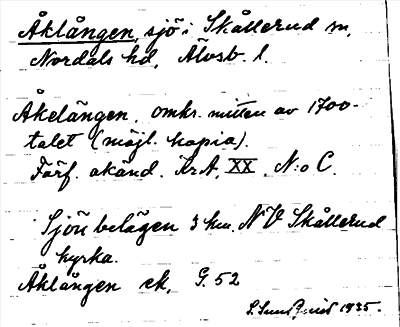 Åklången, sjö i Skållerud sn,
Nordals hd, Älvsb. l.
Åkelången, omkr. mitten av 1700-
talet (möjl. kopia).
Förf. okänd. Kr.A. XX. N:o C.
Sjön belägen 3 km. NV Skållerud
kyrka.
Åklången ek, G. 52
1935.